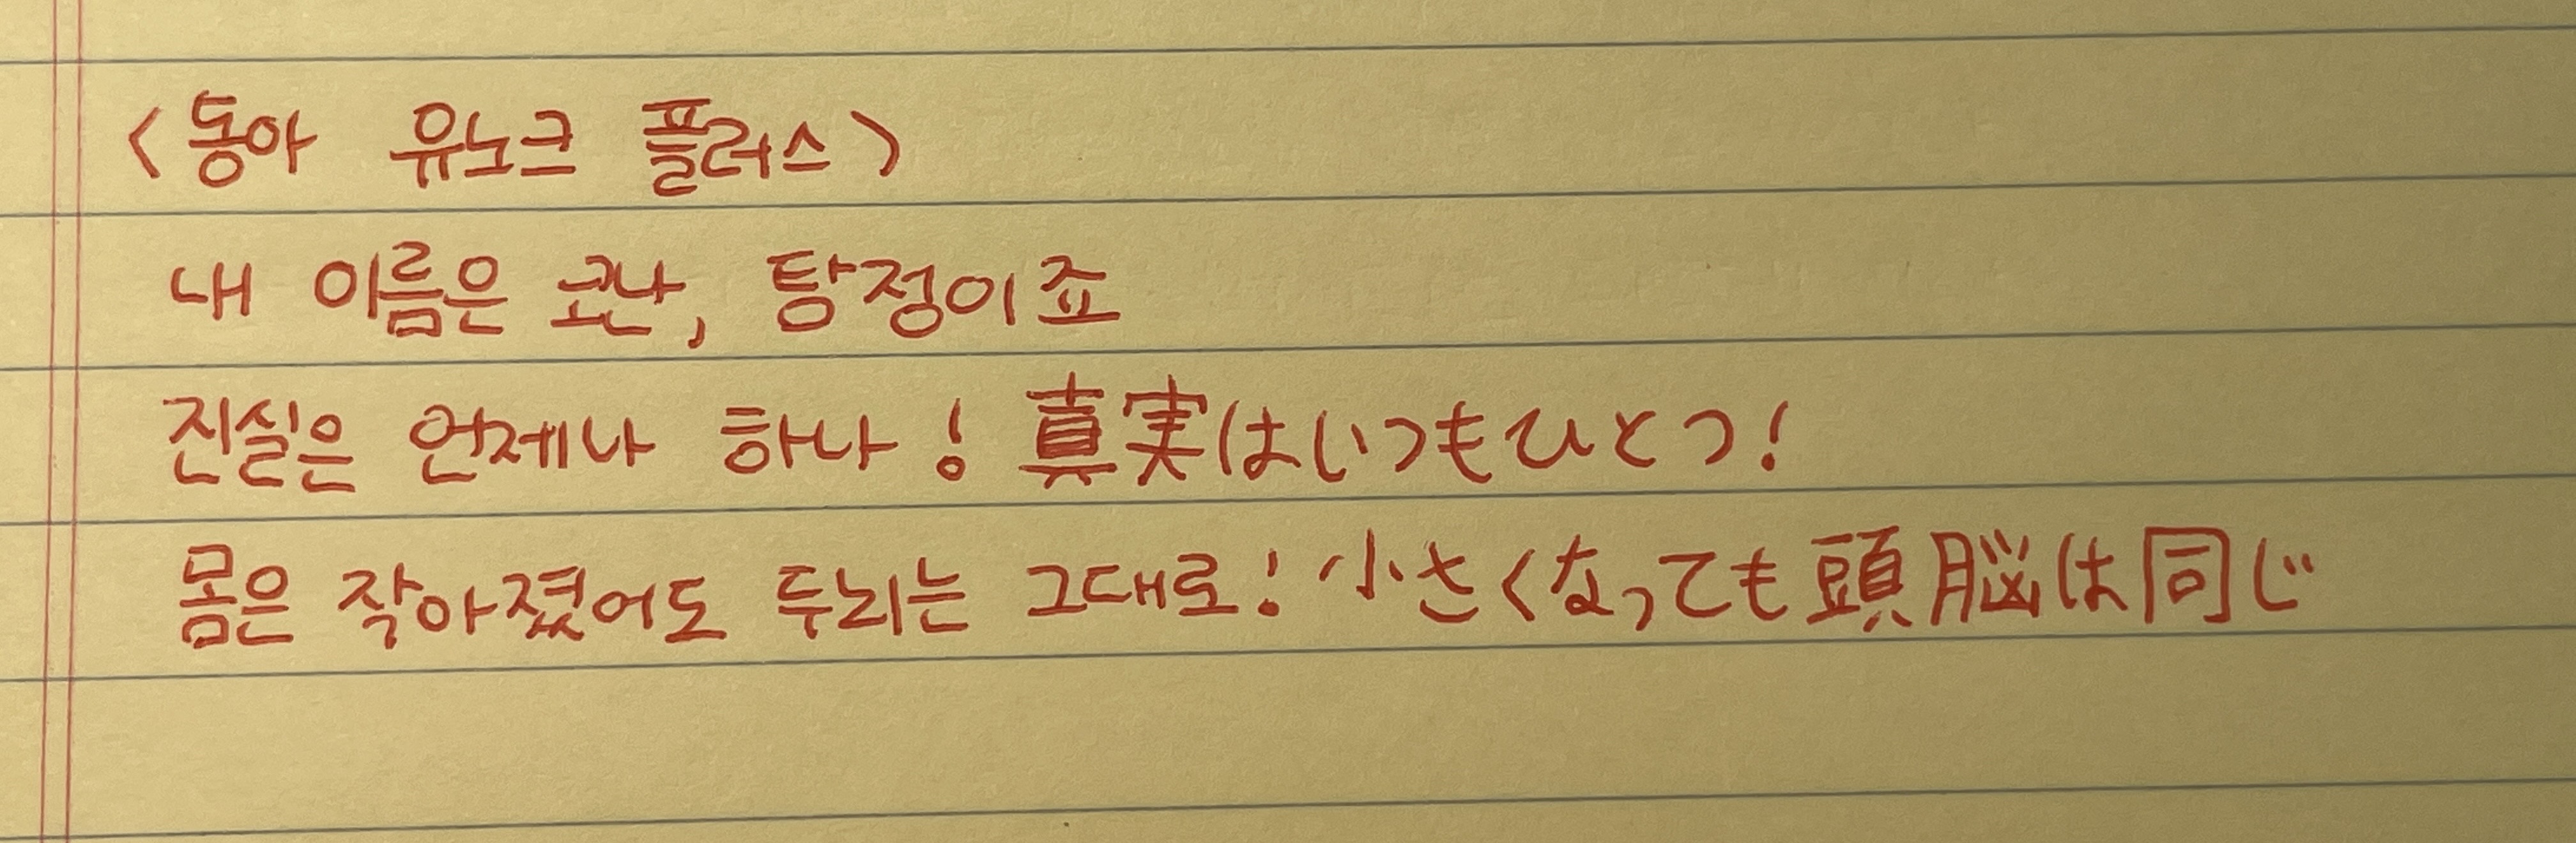 <동아 유노크 플러스>
내 이름은 코난, 탐정이죠
진실은 언제나 하나! 真実はいつもひとつ!
몸은 작아졌어도 두뇌는 그대로! 小さくなっても頭脳は同じ